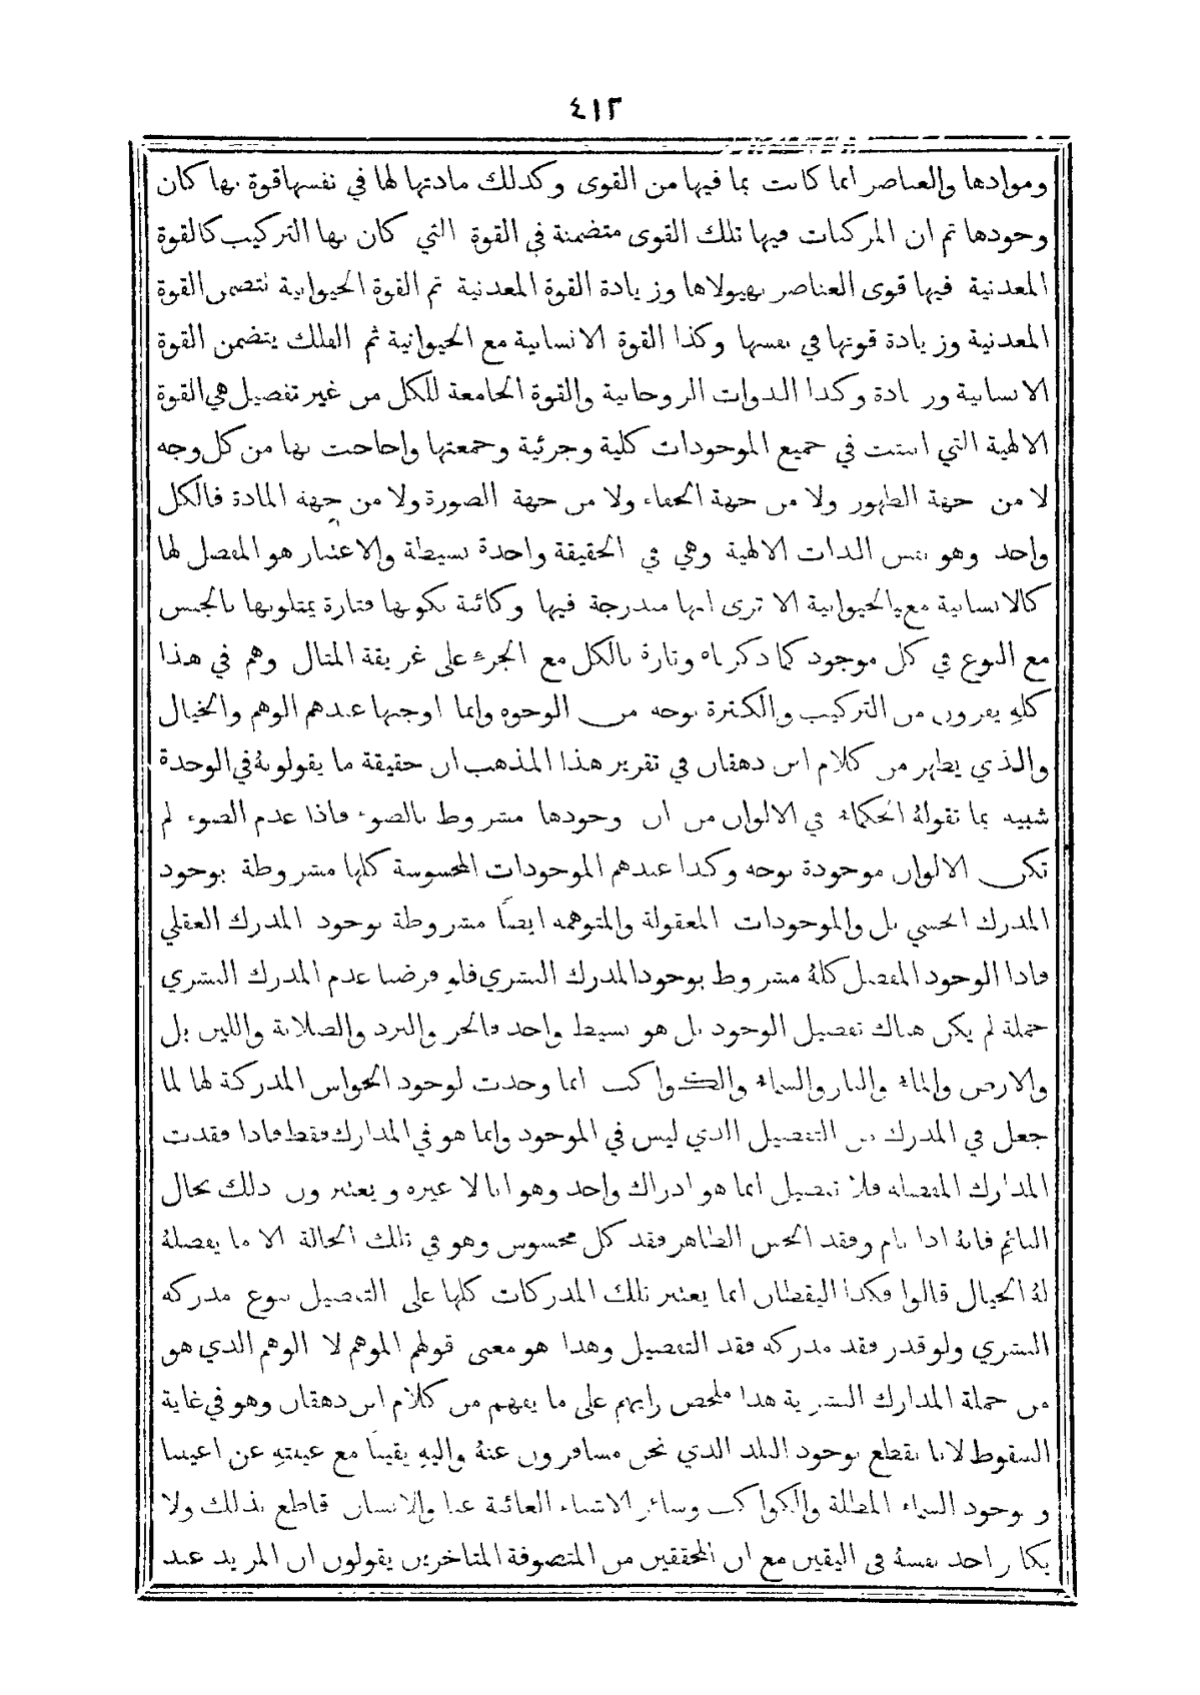 ٤١٢
وموادها والعناصر انما كانت بما فيها من القوى وكذلك مادتها لها في نفسها قوة بها كان
وجودها ثم ان المركبات فيها تلك القوى متضمنة في القوة التي كان بها التركيب كالقوة
المعدنية فيها قوى العناصر بهيولاها وزيادة القوة المعدنية ثم القوة الحيوانية تتضمن القوة
المعدنية وزيادة قوتها في نفسها وكذا القوة الانسانية مع الحيوانية ثم الفلك يتضمن القوة
الانسانية وزيادة وكذا الذوات الروحانية والقوة الجامعة للكل من غير تفصيل هي القوة
الالهية التي انبثت في جميع الموجودات كلية وجزئية وجمعتها واحاطت بها من كل وجه
لا من جهة الظهور ولا من جهة الخفاء ولا من جهة الصورة ولا من جهة المادة فالكل
واحد وهو نفس الذات الالهية وهي في الحقيقة واحدة بسيطة والاعتبار هو المفصل لها
كالانسانية مع الحيوانية الا ترى انها مندرجة فيها وكائنة بكونها فتارة يمثلونها بالجنس
مع النوع في كل موجود كما ذكرناه وتارة بالكل مع الجزء على غريقة المثال وهم في هذا
كله يفرون من التركيب والكثرة بوجه من الوجوه وانما اوجبها عندهم الوهم والخيال
والذي يظهر من كلام ابن دهقان في تقرير هذا المذهب ان حقيقة ما يقولونهُ في الوحدة
شبيه بما تقولهُ الحكماء في الالوان من ان وجودها مشروط بالضوء فاذا عدم الضوء لم
تكن الالوان موجودة بوجه وكذا عندهم الموجودات المحسوسة كلها مشروطة بوجود
المدرك الحسي بل والموجودات المعقولة والمتوهمه ايضاً مشروطة بوجود المدرك العقلي
فاذا الوجود المفصل كلهُ مشروط بوجود المدرك البشري فلو فرضنا عدم المدرك البشري
جملة لم يكن هناك تفصيل الوجود بل هو بسيط واحد فالحر والبرد والصلابة واللين بل
والارض والماء والنار والسماء والكواكب انما وجدت لوجود الحواس المدركة لها لما
جعل في المدرك من التفصيل الذي ليس في الموجود وانما هو في المدارك فقط فاذا فقدت
المدارك المفصله فلا تفصيل انما هو ادراك واحد وهو انا لا غيره ويعتبرون ذلك بحال
النائم فانهُ اذا نام وفقد الحس الظاهر فقد كل محسوس وهو في تلك الحالة الا ما يفصلهُ
لهُ الخيال قالوا فكذا اليقظان انما يعتبر تلك المدركات كلها على التفصيل بنوع مدركه
البشري ولو قدر فقد مدركه فقد التفصيل وهذا هو معنى قولهم الموهم لا الوهم الذي هو
من جملة المدارك البشرية هذا ملخص رايهم على ما يفهم من كلام ابن دهقان وهو في غاية
السقوط لانا نقطع بوجود البلد الذي نحن مسافرون عنهُ واليهِ يقيناً مع غيبته عن اعيننا
وبوجود السماء المظلة والكواكب وسائر الاشياء الغائبة عنا والانسان قاطع بذلك ولا
يكابر احد نفسهُ في اليقين مع ان المحققين من المتصوفة المتاخرين يقولون ان المريد عند